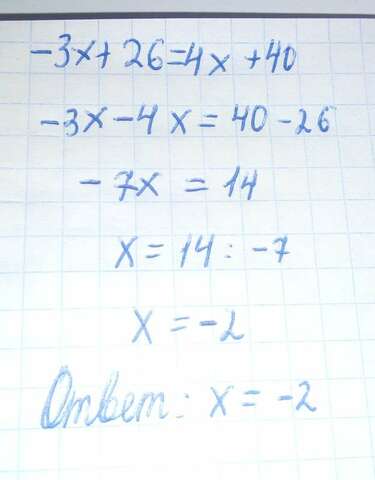 -3x+26=4x+40
-3x-4x=40-26
-7x=14
x=14:-7
x=-2
Ответ: x=-2